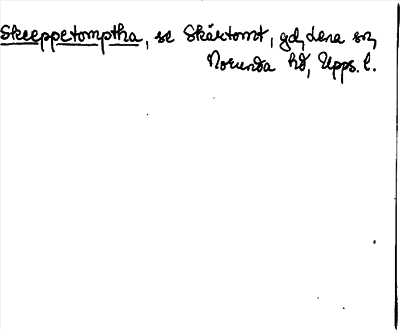 Skeeppetomptha, se Skärtomt, gd, Lena sn,
Norunda hd, Upps. l.